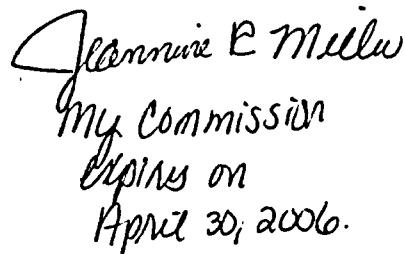 Jeannine R Miller
My Commission
expires on
April 30, 2006.